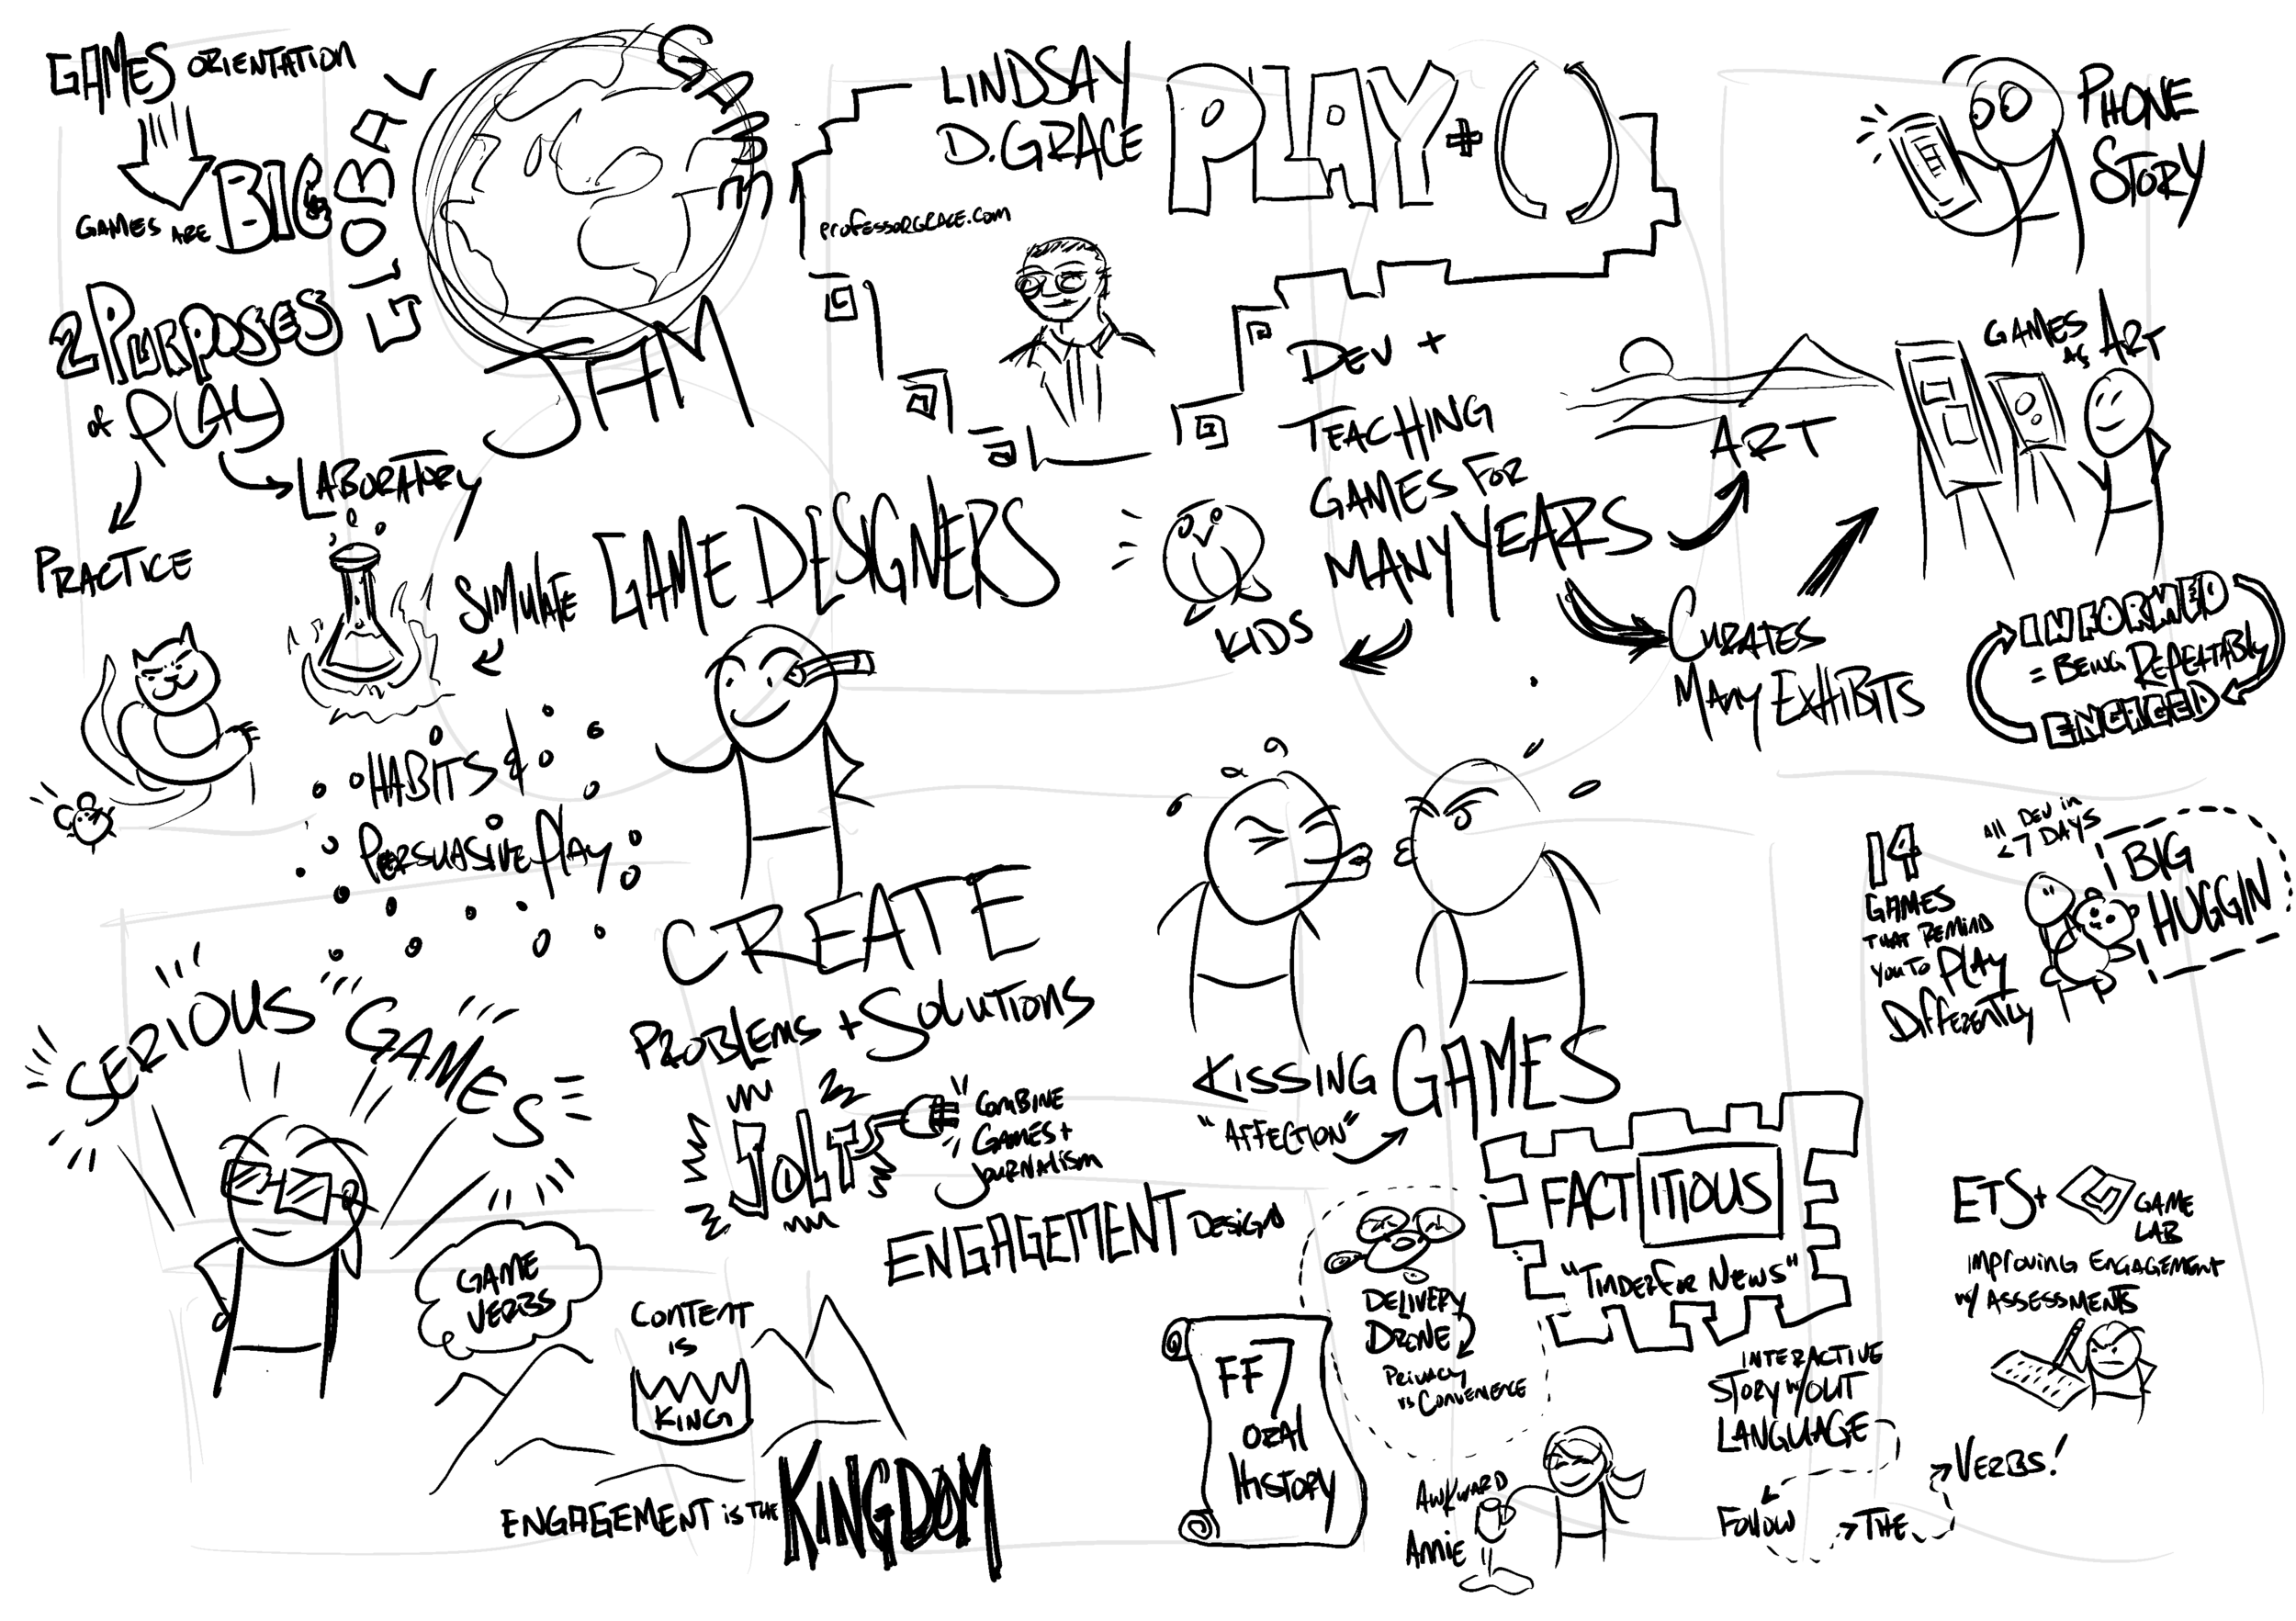 GAMES ORIENTATION
GAMES ARE BIG
GLOBAL
GAME
JAM
2 PURPOSES
of PLAY
LABORATORY
PRACTICE
SIMULATE GAME DESIGNERS
HABITS &
PERSUASIVE PLAY
CREATE
PROBLEMS + SOLUTIONS
SERIOUS GAMES
GAME
VERBS
JOLT
COMBINE
GAMES +
JOURNALISM
ENGAGEMENT DESIGN
CONTENT
IS
KING
ENGAGEMENT is THE KINGDOM
LINDSAY
D. GRACE
PLAY + ( )
PROFESSORGRACE.COM
DEV +
TEACHING
GAMES FOR
MANY YEARS
ART
KIDS
CURATES
MANY EXHIBITS
PHONE
STORY
GAMES
AS ART
INFORMED
= BEING REPEATABLY
ENGAGED
KISSING GAMES
"AFFECTION"
14
GAMES
THAT REMIND
YOU TO PLAY
DIFFERENTLY
All DEV in
7 DAYS
BIG
HUGGIN
FACTITIOUS
"TINDER FOR NEWS"
DELIVERY
DRONE
PRIVACY
vs CONVENIENCE
FF7
ORAL
HISTORY
AWKWARD
ANNIE
INTERACTIVE
STORY W/OUT
LANGUAGE
FOLLOW
THE
VERBS!
ETS +
GAME
LAB
IMPROVING ENGAGEMENT
W/ ASSESSMENTS